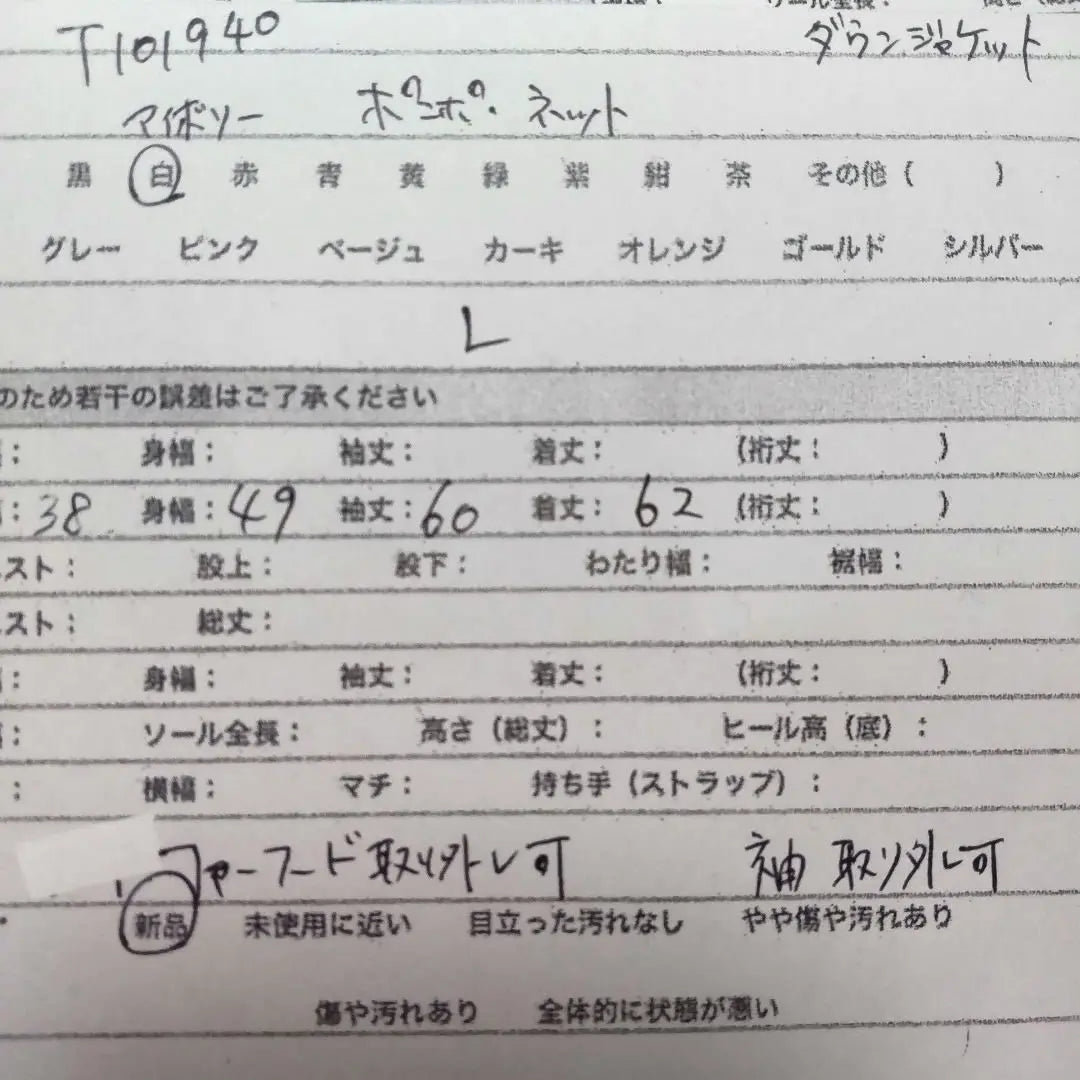 T101940 ダウンジャケット
マイボソー ポンポネット
黒 白 赤 青 黄 緑 紫 紺 茶 その他( )
グレー ピンク ベージュ カーキ オレンジ ゴールド シルバー
L
のため若干の誤差はご了承ください
: 身幅: 袖丈: 着丈: (裄丈: )
: 38 身幅: 49 袖丈: 60 着丈: 62 (裄丈: )
スト: 股上: 股下: わたり幅: 裾幅:
スト: 総丈:
: 身幅: 袖丈: 着丈: (裄丈: )
: ソール全長: 高さ(総丈): ヒール高(底):
: 横幅: マチ: 持ち手(ストラップ):
ファーフード取り外し可 袖取り外し可
新品 未使用に近い 目立った汚れなし やや傷や汚れあり
傷や汚れあり 全体的に状態が悪い